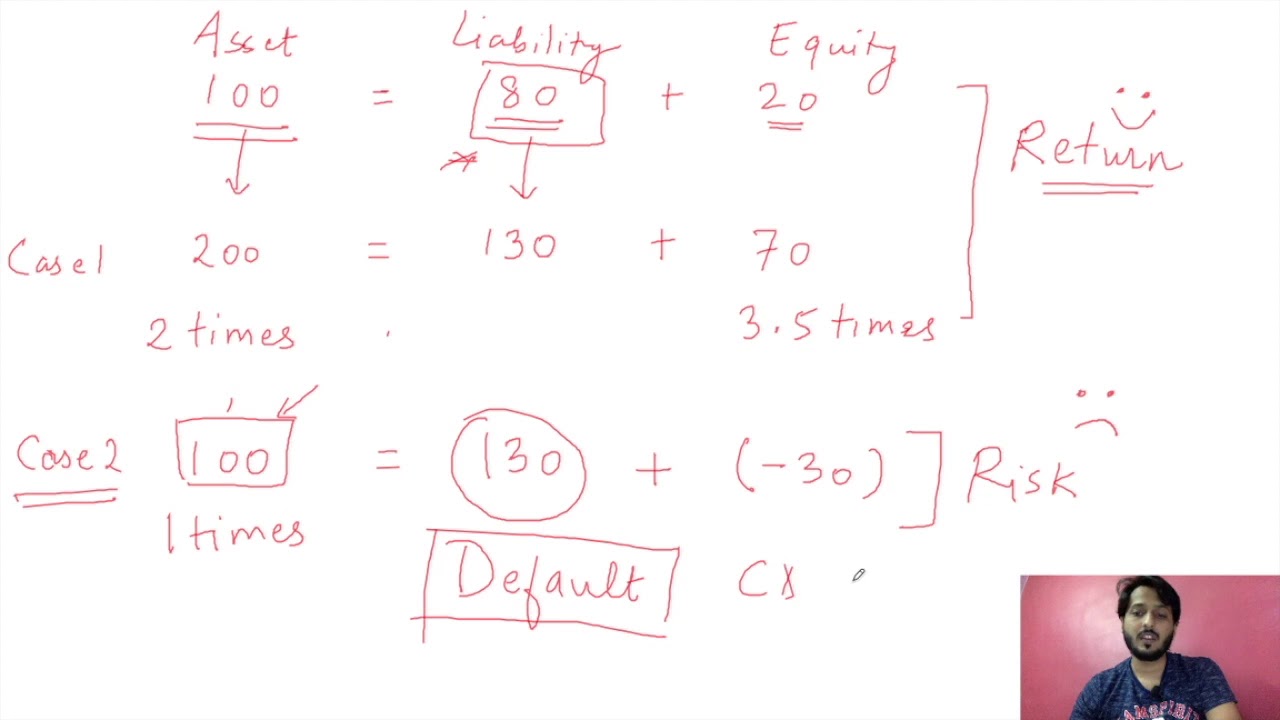 Asset Liability Equity
100 = 80 + 20
Return
Case1 200 = 130 + 70
2 times 3.5 times
Case 2 100 = 130 + (-30) Risk
1 times
Default